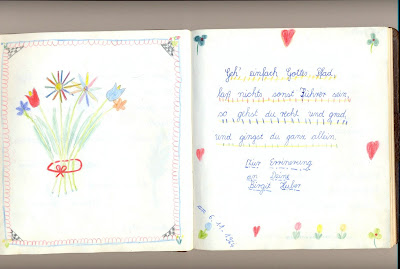 Geh' einfach Gottes Pfad,
laß nichts sonst Führer sein,
so gehst du recht und grad,
und gingst du ganz allein.
Zur Erinnerung
an Deine
Birgit Huber
am 6. 11. 1964